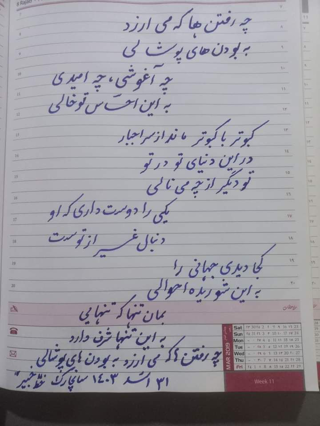 چه رفتن ها که می ارزد
به بودن های پوشالی
چه آغوشی، چه امیدی
به این احساس تو خالی
کبوتر با کبوتر ماند از سر اجبار
در این دنیای تو در تو
تو دیگر از چه می نالی
یکی را دوست داری که او
دنبال غیر از توست
کجا دیدی جهانی را
به این شوریده احوالی
بمان تنها که تنهایی
به این تنها شرف دارد
چه رفتن ها که می ارزد به بودن های پوشالی
۳۱ اسد ۱۴۰۳
MAR 2019
Sat
Sun
Mon
Tue
Wed
Thu
Fri
Week 11